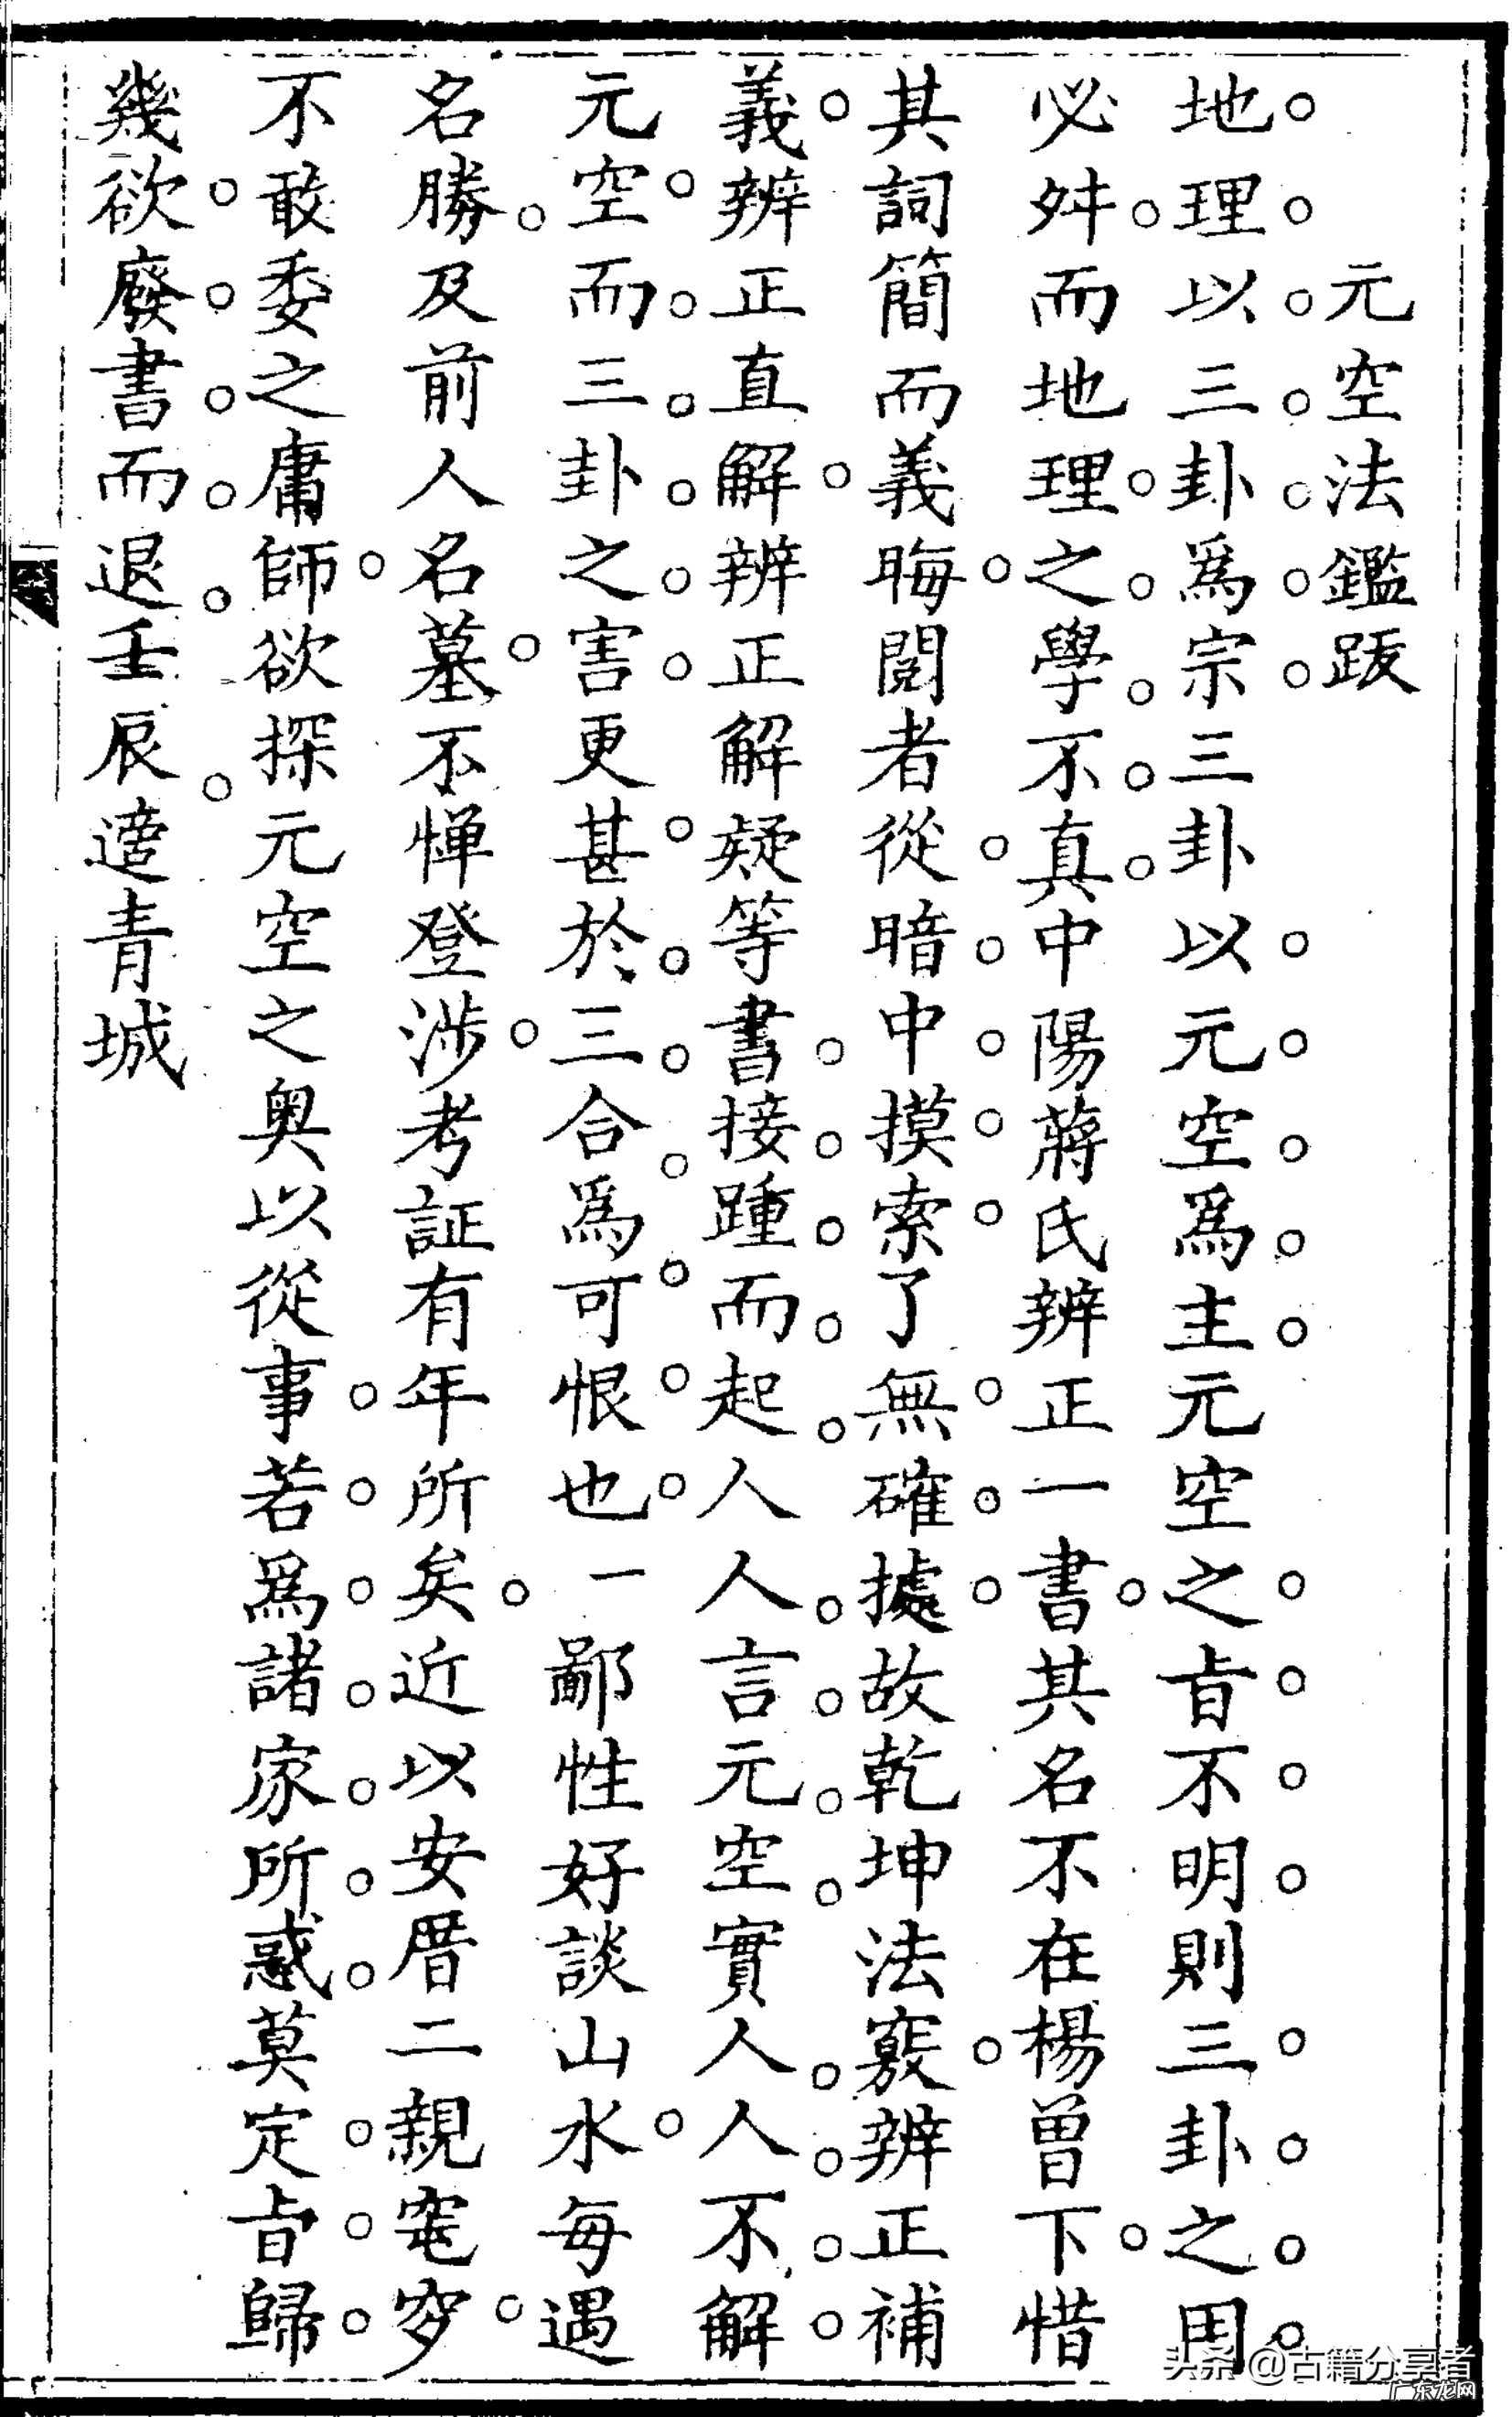 元空法鑑跋
地理以三卦爲宗三卦以元空爲主元空之旨不明則三卦之用
必舛而地理之學不真中陽蔣氏辨正一書其名不在楊曾下惜
其詞簡而義晦閱者從暗中摸索了無確據故乾坤法竅辨正補
義辨正直解辨正解疑等書接踵而起人人言元空實人人不解
元空而三卦之害更甚於三合爲可恨也一鄙性好談山水每遇
名勝及前人名墓不憚登涉考証有年所矣近以安厝二親窀穸
不敢委之庸師欲探元空之奥以從事若爲諸家所惑莫定旨歸
幾欲廢書而退壬辰遊青城
头条 @古籍分享者
广东龙网